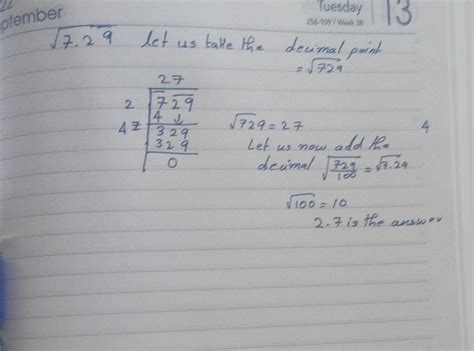 22
ptember
Tuesday
256-109 / Week 38
13
√7.29 let us take the decimal point
= √729
27
2 729
4 ↓
47 329
329
0
√729 = 27
4
Let us now add the
decimal √729/100 = √7.29
√100 = 10
2.7 is the answer